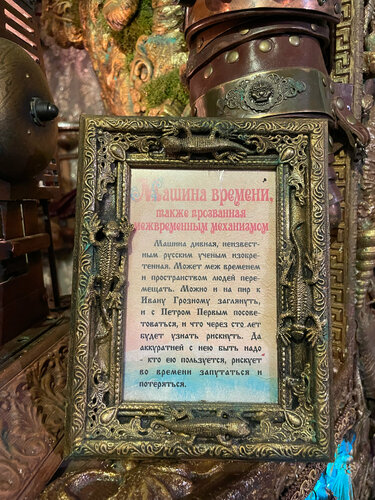 Машина времени,
также прозванная
межвременным механизмом
Машина дивная, неизвест-
ным русским ученым изобре-
тенная. Может меж временем
и пространством людей пере-
мещать. Можно и на пир к
Ивану Грозному заглянуть,
и с Петром Первым посове-
товаться, и что через сто лет
будет узнать рискнуть. Да
аккуратней с нею быть надо
- кто ею пользуется, рискует
во времени запутаться и
потеряться.